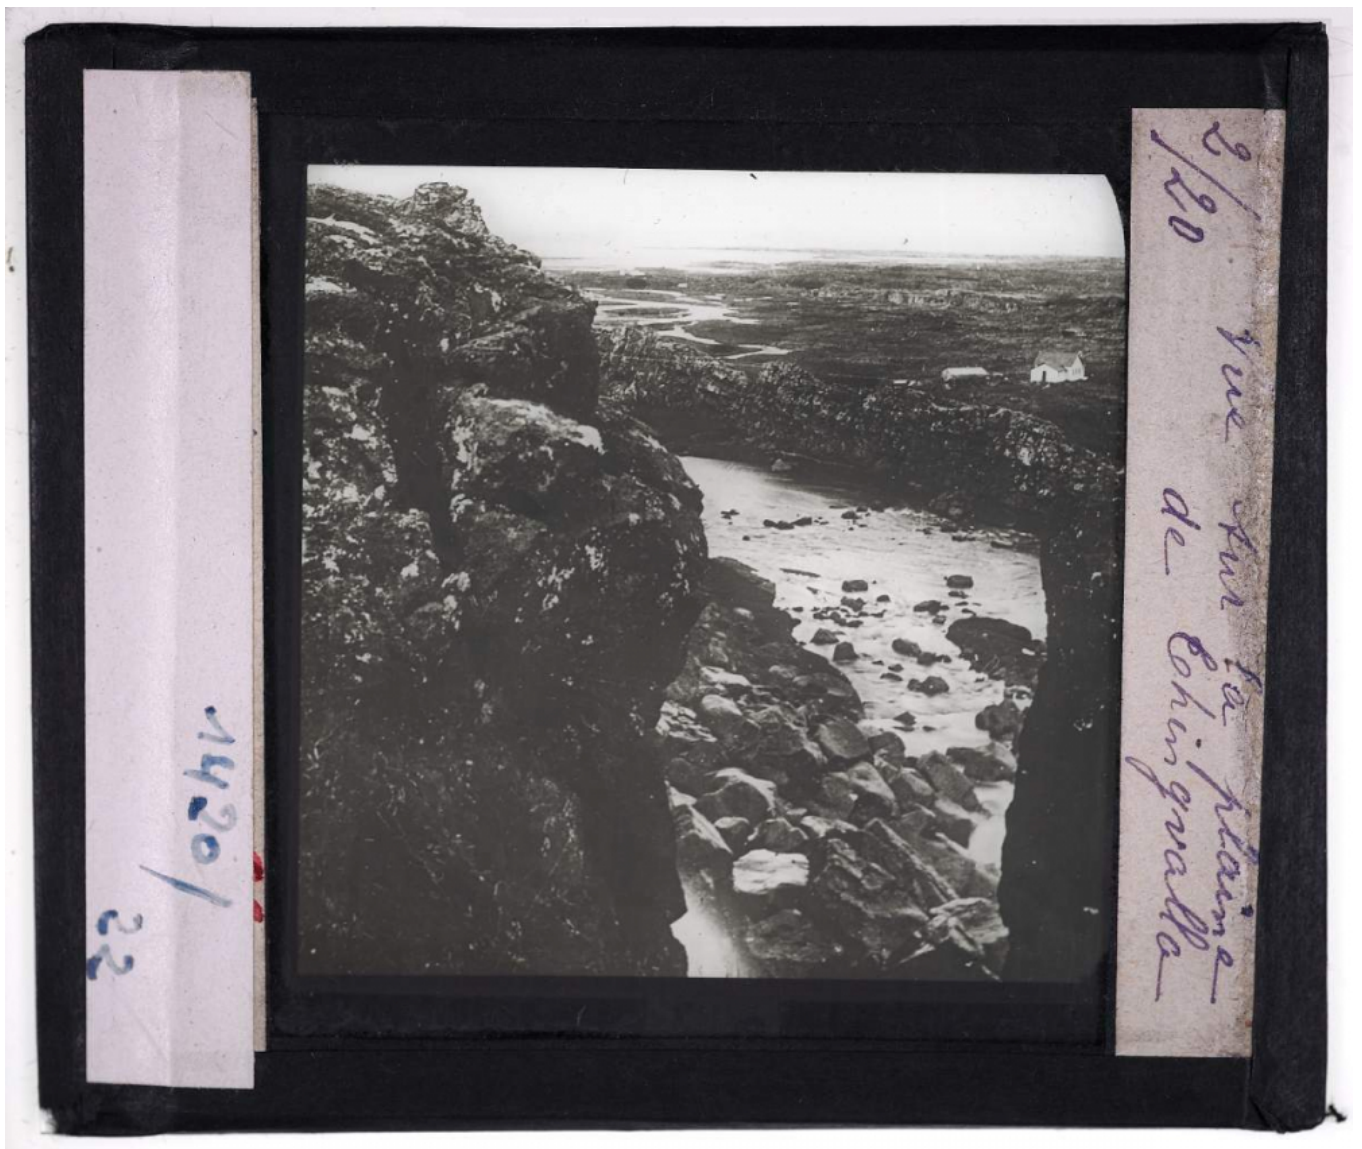 1420/
22
2/20 Vue sur la plaine
de Tohingvalla